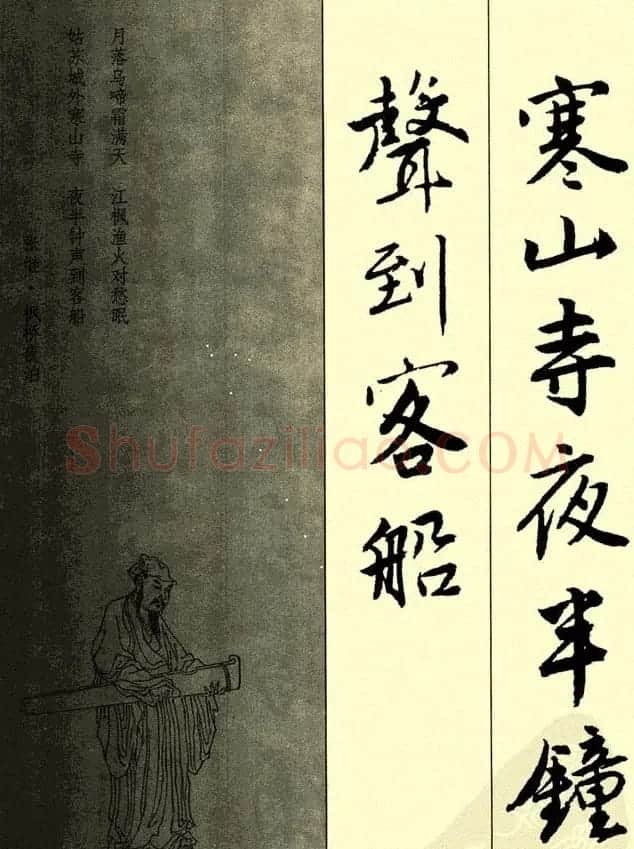 寒山寺夜半鐘
聲到客船
月落乌啼霜满天 江枫渔火对愁眠
姑苏城外寒山寺 夜半钟声到客船
张继·枫桥夜泊
Shufaziliao.COM